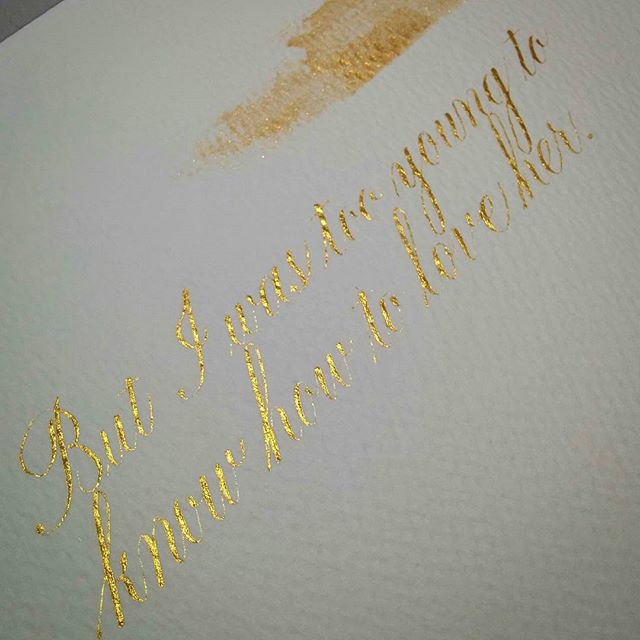 But I was too young to
know how to love her.